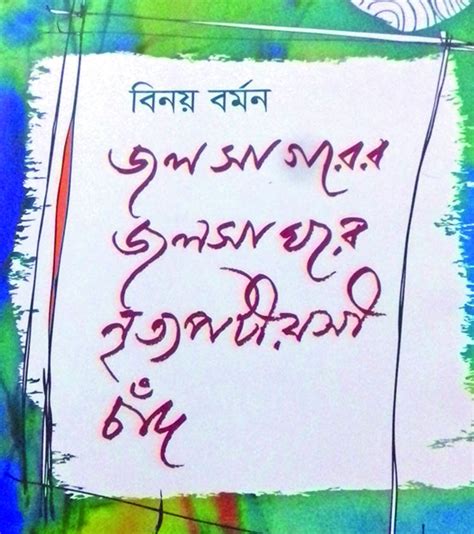 বিনয় বর্মন
জল সাগরের
জলসা ঘরে
নৃত্যপটীয়সী
চাঁদ